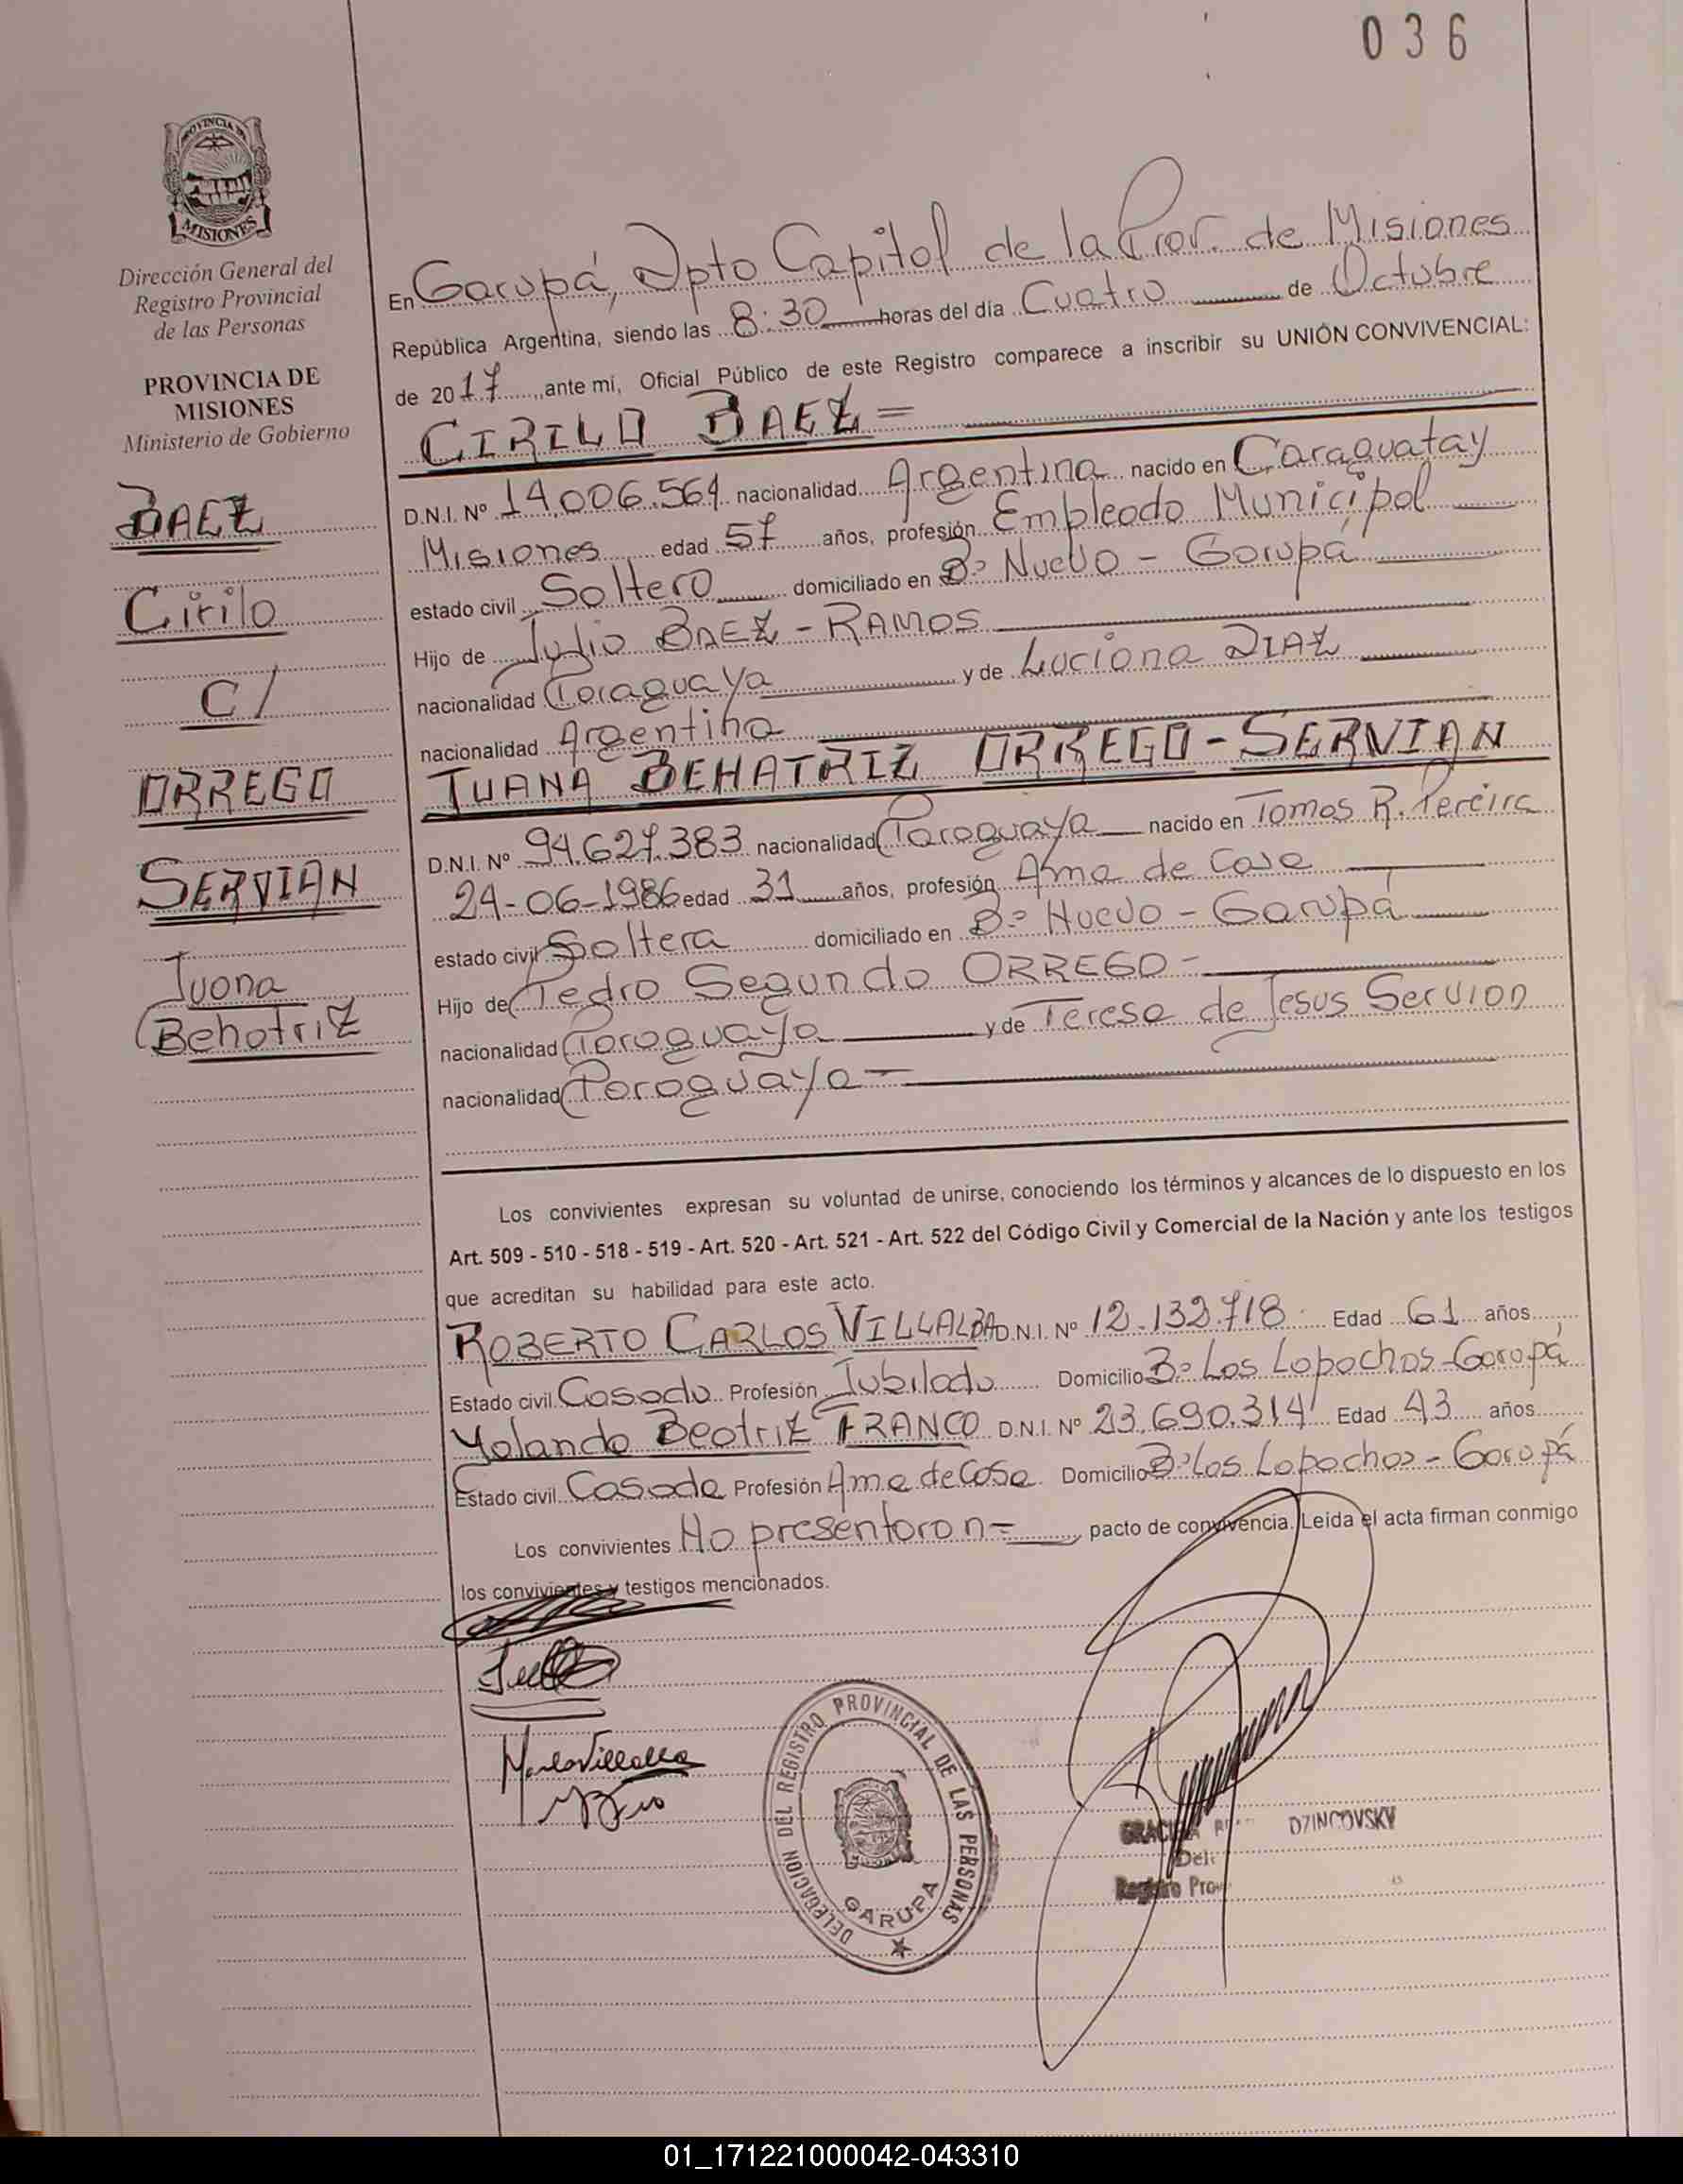 036
PROVINCIA DE
MISIONES
Dirección General del
Registro Provincial
de las Personas
PROVINCIA DE
MISIONES
Ministerio de Gobierno
BAEZ
Cirilo
C/
ORREGO
SERVIAN
Juana
Behatriz
En Garupá, Dpto Capital de la Prov. de Misiones
República Argentina, siendo las 8:30 horas del día Cuatro de Octubre
de 2017, ante mí, Oficial Público de este Registro comparece a inscribir su UNIÓN CONVIVENCIAL:
CIRILO BAEZ =
D.N.I. Nº 14.006.561 nacionalidad Argentina nacido en Caraguatay
Misiones edad 57 años, profesión Empleado Municipal
estado civil Soltero domiciliado en Bº Nuevo - Garupá
Hijo de Julio BAEZ - RAMOS
nacionalidad Paraguaya y de Luciana DIAZ
nacionalidad Argentina
JUANA BEHATRIZ ORREGO - SERVIAN
D.N.I. Nº 94.627.383 nacionalidad Paraguaya nacido en Tomas R. Pereira
24-06-1986 edad 31 años, profesión Ama de Casa
estado civil Soltera domiciliado en Bº Nuevo - Garupá
Hijo de Pedro Segundo ORREGO -
nacionalidad Paraguaya y de Teresa de Jesus Servian
nacionalidad Paraguaya -
Los convivientes expresan su voluntad de unirse, conociendo los términos y alcances de lo dispuesto en los
Art. 509 - 510 - 518 - 519 - Art. 520 - Art. 521 - Art. 522 del Código Civil y Comercial de la Nación y ante los testigos
que acreditan su habilidad para este acto.
ROBERTO CARLOS VILLALBA D.N.I. Nº 12.132.718 Edad 61 años
Estado civil Casado Profesión Jubilado Domicilio Bº Los Lapachos - Garupá
Yolanda Beatriz FRANCO D.N.I. Nº 23.690.314 Edad 43 años
Estado civil Casada Profesión Ama de Casa Domicilio Bº Los Lapachos - Garupá
Los convivientes No presentaron = pacto de convivencia. Leida el acta firman conmigo
los convivientes y testigos mencionados.
DELEGACION DEL REGISTRO PROVINCIAL DE LAS PERSONAS
GARUPA
DZINCOVSKY
Registro Pro
01_171221000042-043310